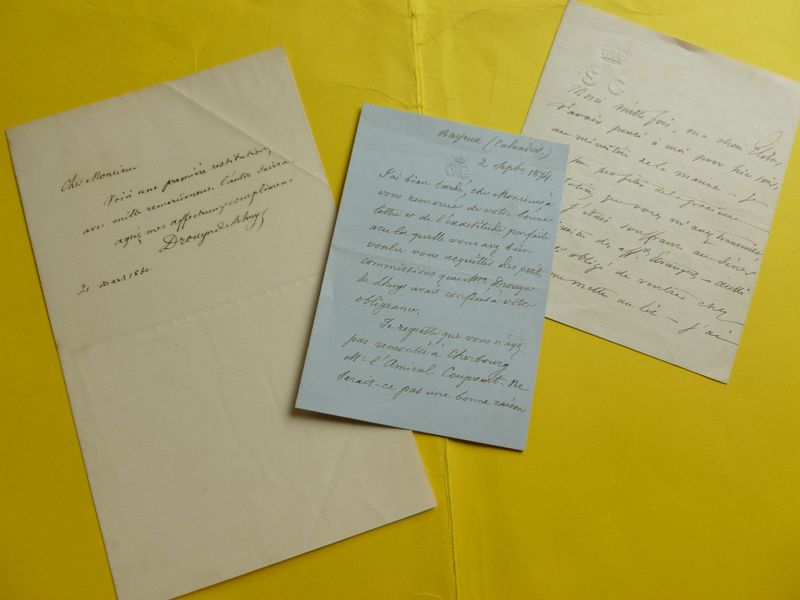 Cher Monsieur
Voici une première restitution,
avec mille remerciemens. L'autre suivra
agréez mes affectueux complimens
Drouyn de Lhuys
21 mars 1860
Bayeux (Calvados)
2 Sepbre 1874.
J'ai bien tardé, cher Monsieur, à
vous remercier de votre bonne
lettre et de l'exactitude parfaite
avec laquelle vous avez bien
voulu vous acquitter des petites
commissions que Mme Drouyn
de Lhuys avait confiées à votre
obligeance.
Je regrette que vous n'ayez
pas rencontré à Cherbourg
Mr l'Amiral Coupvent. Ne
serait-ce pas une bonne raison
Merci mille fois, mon cher
d'avoir pensé à moi pour hier soir,
au ministère de la marine. J
pu profiter de la gracieuse
que vous m'avez transmise
étais souffrant au dîner
des aff. Étrangères
obligé de rentrer chez
me mettre au lit - j'ai